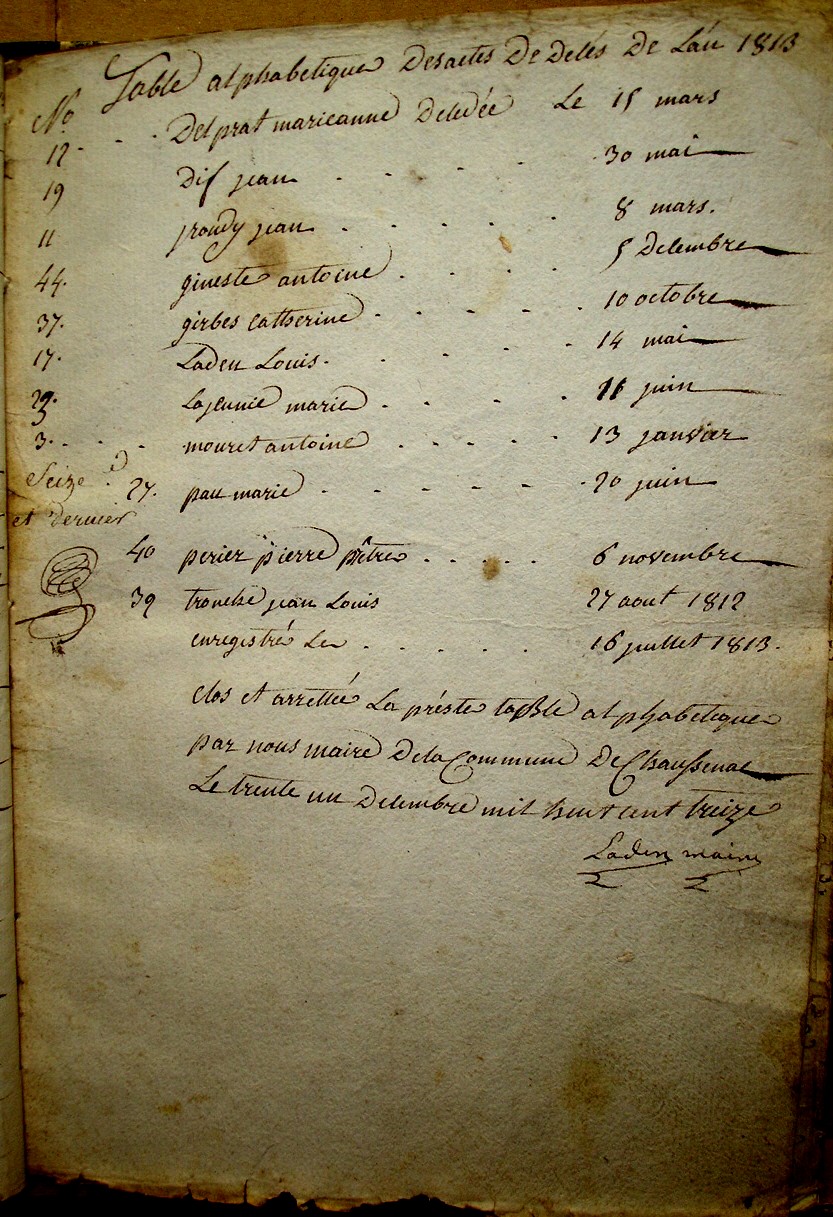 Table alphabetique Des actes De Décés De L'an 1813
No
12 - - - Delprat marieanne Décédée Le 15 mars
19 Dif jean - - - - - 30 mai
11 froudy jean - - - - - 8 mars.
44. gineste antoine - - - - 5 Décembre
37. girbes Catherine - - - - - 10 octobre
17. Laden Louis - - - - - 14 mai
Lajeunie marie - - - - - 11 juin
3. - - - mouret antoine - - - - - 13 janvier
Seize
27. pau marie - - - - - - 20 juin
et dernier
40 perier pierre prêtre - - - - - 6 novembre
39 tronche jean Louis 27 aout 1812
enregistré Le - - - - - 16 juillet 1813.
Clos et arrettée La présté table alphabetique
par nous maire De la Commune De Chaussenac
Le trente un Décembre mil huit cent treize
Laden maire